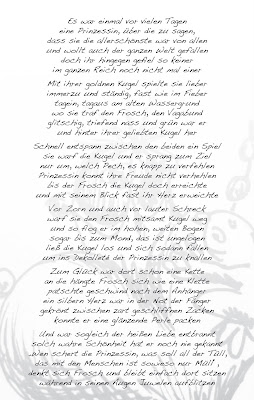 Es war einmal vor vielen Tagen
eine Prinzessin, über die zu sagen,
dass sie die allerschönste war von allen
und wollt auch der ganzen Welt gefallen
doch ihr hingegen gefiel so keiner
im ganzen Reich noch nicht mal einer
Mit ihrer goldnen Kugel spielte sie lieber
immerzu und ständig, fast wie im Fieber
tagein, tagaus am alten Wassergrund
wo sie traf den Frosch, den Vagabund
glitschig, triefend nass und grün war er
und hinter ihrer geliebten Kugel her
Schnell entspann zwischen den beiden ein Spiel
sie warf die Kugel und er sprang zum Ziel
nur um, welch Pech, es knapp zu verfehlen
Prinzessin konnt ihre Freude nicht verhehlen
bis der Frosch die Kugel doch erreichte
und mit seinem Blick fast ihr Herz erweichte
Vor Zorn und auch vor lauter Schreck
warf sie den Frosch mitsamt Kugel weg
und so flog er im hohen, weiten Bogen
sogar bis zum Mond, das ist ungelogen
ließ die Kugel los und sich sodann fallen
um ins Dekolleté der Prinzessin zu knallen
Zum Glück war dort schon eine Kette
an die hängte Frosch sich wie eine Klette
patschte geschwind nach dem Anhänger
ein silbern Herz war in der Not der Fänger
gekrönt zwischen zart geschliffnen Zacken
konnte er eine glänzende Perle packen
Und war sogleich der heißen Liebe entbrannt
solch wahre Schönheit hat er noch nie gekannt
schert die Prinzessin, was soll all der Tüll,
das mit den Menschen ist sowieso nur Müll,
denkt sich Frosch und bleibt einfach dort sitzen
während in seinen Augen Juwelen aufblitzen